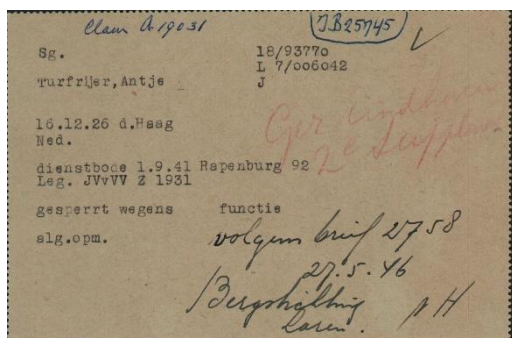 Claim A 19031
JB25745
Sg. 18/93770
L 7/006042
Turfrijer, Antje J
16.12.26 d.Haag
Ned.
Gef. Eindhoven
2e Suppl.
dienstbode 1.9.41 Rapenburg 92
Leg. JVvVV Z 1931
gesperrt wegens functie
alg.opm.
volgens brief 2758
27.5.46
Bergstichting
Laren. NH